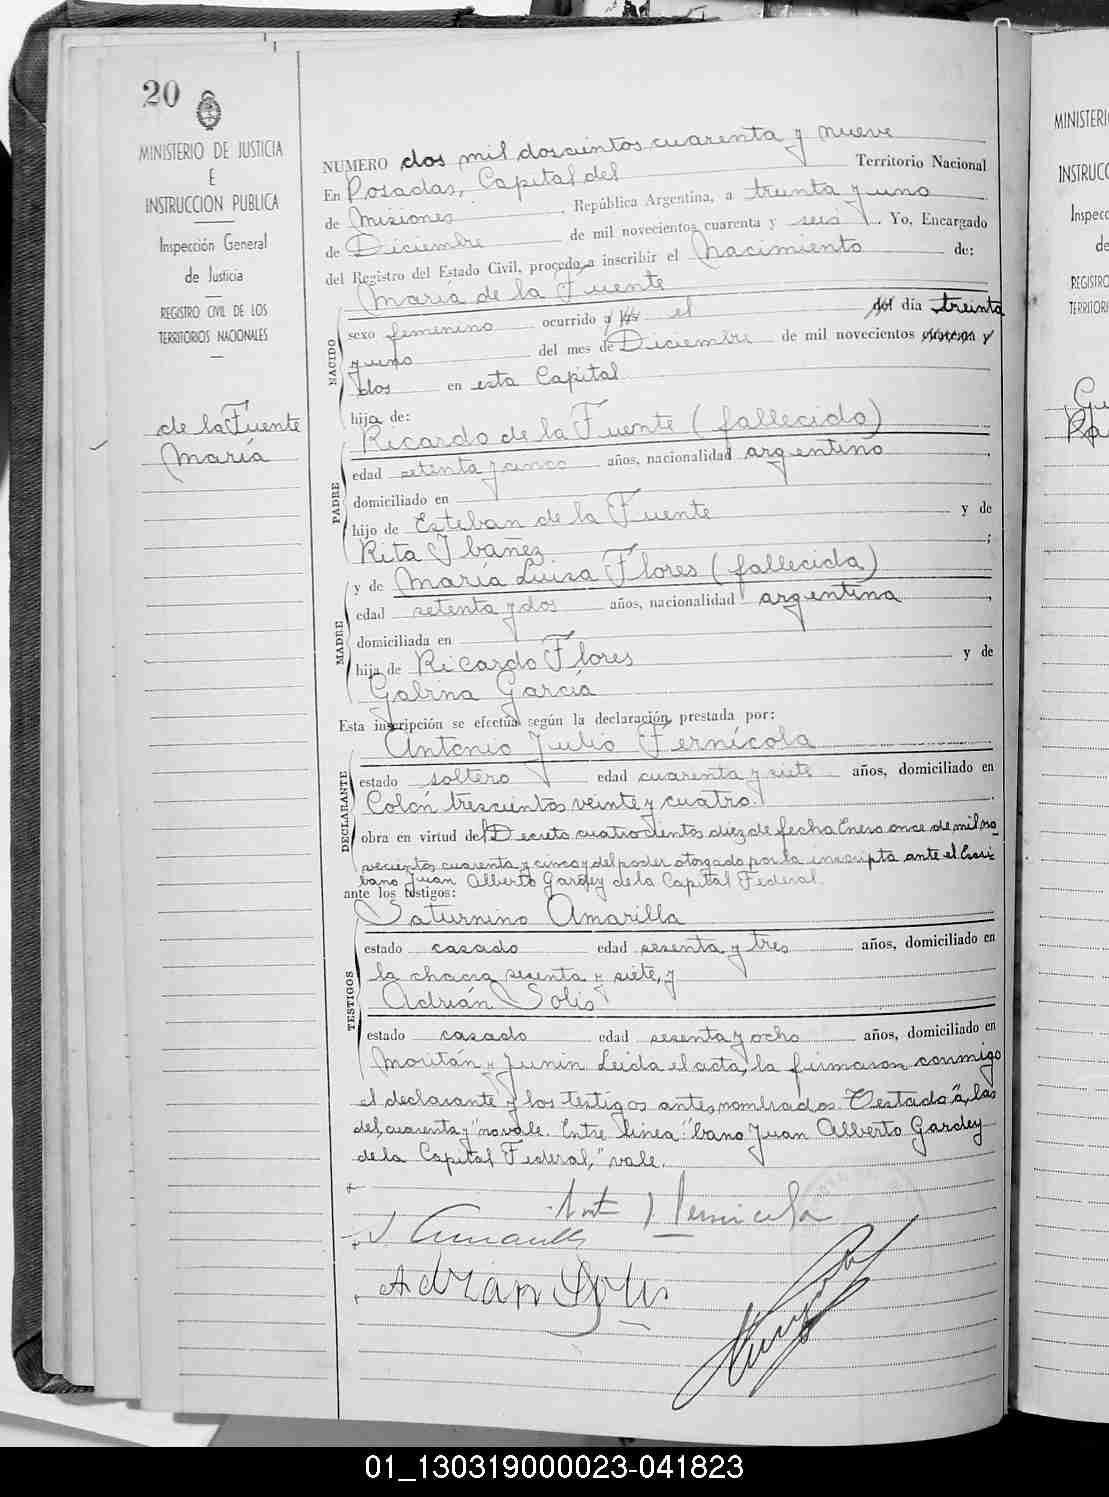 20
MINISTERIO DE JUSTICIA
E
INSTRUCCION PUBLICA
Inspección General
de Justicia
REGISTRO CIVIL DE LOS
TERRITORIOS NACIONALES
de la Fuente
María
NUMERO dos mil doscientos cuarenta y nueve
En Posadas, Capital del Territorio Nacional
de Misiones, República Argentina, a treinta y uno
de Diciembre de mil novecientos cuarenta y seis. Yo, Encargado
del Registro del Estado Civil, procedo a inscribir el Nacimiento de:
María de la Fuente
NACIDO
sexo femenino ocurrido a las el del día treinta
y uno del mes de Diciembre de mil novecientos cuarenta y
dos en esta Capital
hija de:
Ricardo de la Fuente (fallecido)
PADRE
edad setenta y cinco años, nacionalidad argentino
domiciliado en
hijo de Esteban de la Fuente y de
Rita Ibañez ;
y de María Luisa Flores (fallecida)
MADRE
edad setenta y dos años, nacionalidad argentina
domiciliada en
hija de Ricardo Flores y de
Gabina García
Esta inscripción se efectúa según la declaración prestada por:
Antonio Julio Fernícola
DECLARANTE
estado soltero edad cuarenta y siete años, domiciliado en
Colón trescientos veinte y cuatro.
obra en virtud del Decreto cuatrocientos diez de fecha Enero once de mil no-
vecientos cuarenta y cinco y del poder otorgado por la inscripta ante el Escri-
bano Juan Alberto Gardey de la Capital Federal.
ante los testigos:
Saturnino Amarilla
TESTIGOS
estado casado edad sesenta y tres años, domiciliado en
la chacra sesenta y siete, y
Adrián Solis
estado casado edad sesenta y ocho años, domiciliado en
Moritán y Junin. Leida el acta, la firmaron conmigo
el declarante y los testigos antes nombrados. Testado "a, las
del, cuarenta y" no vale. Entre línea: "bano Juan Alberto Gardey
de la Capital Federal," vale.
Ant J Fernicola
S Amarilla
Adrian Solis
MINISTERI
INSTRUCC
Inspecc
de
REGISTRO
TERRITORI
01_130319000023-041823